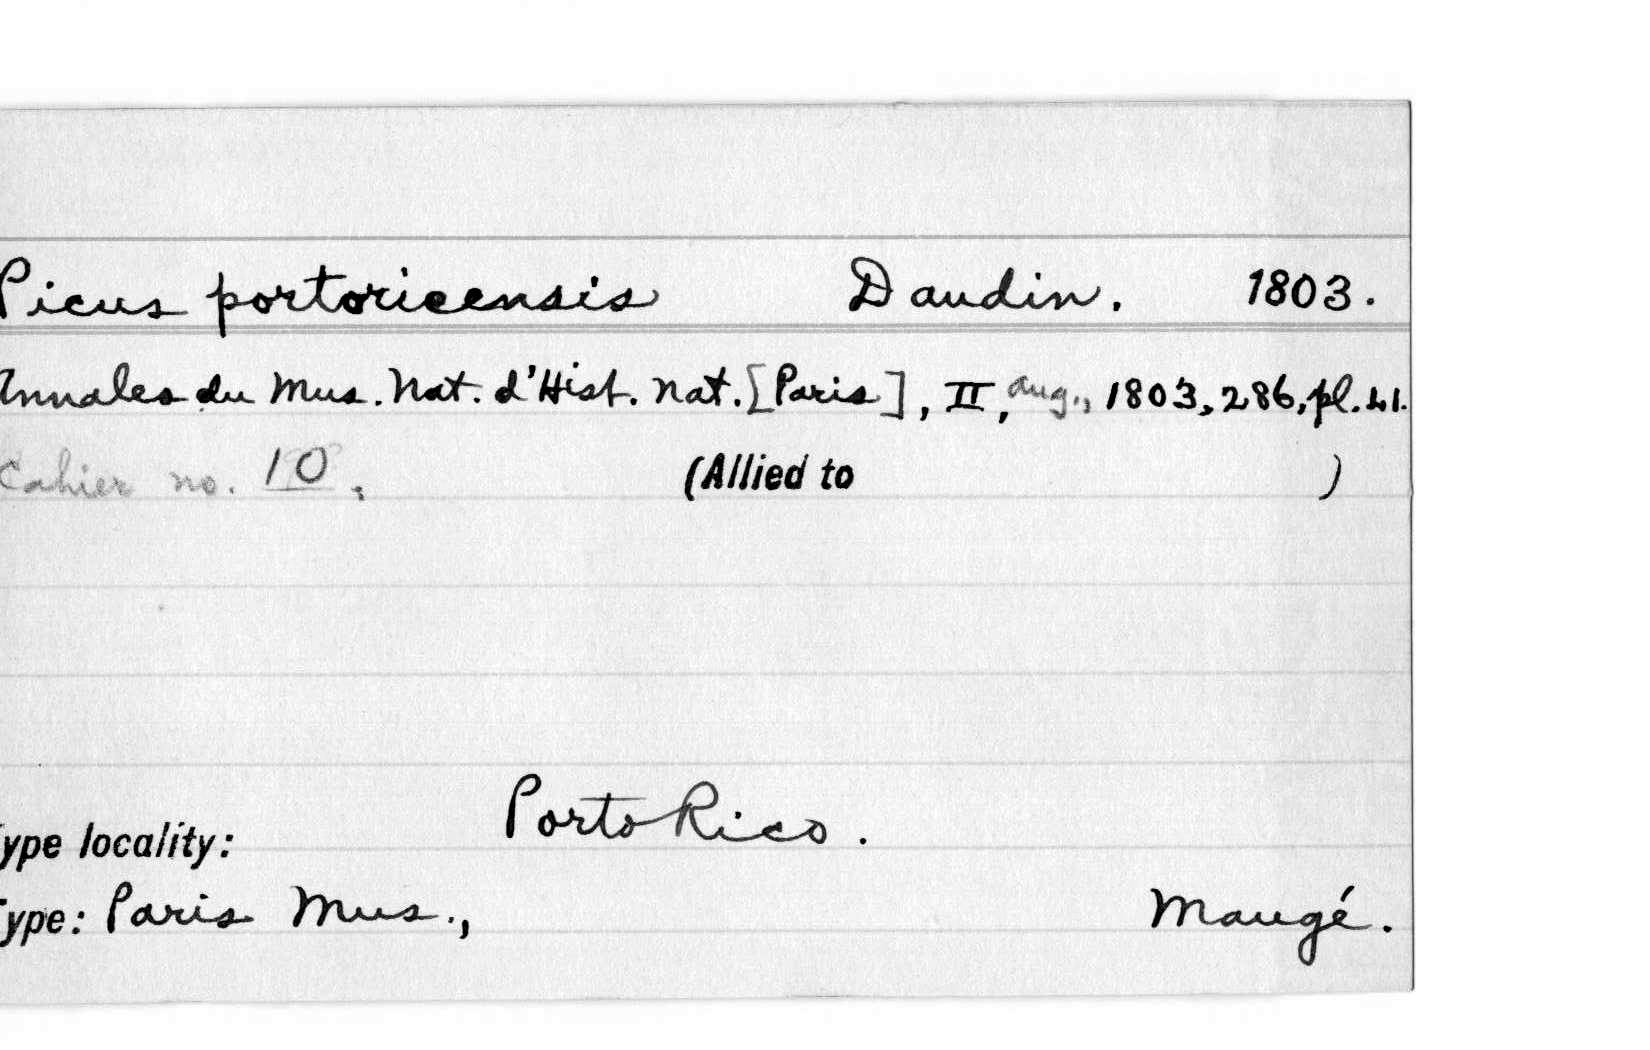 Picus portoricensis Daudin. 1803.
Annales du Mus. Nat. d'Hist. Nat. [Paris], II, Aug., 1803, 286, pl. 41.
Cahier no. 10;
(Allied to )
ype locality: Porto Rico.
Type: Paris Mus., Maugé.